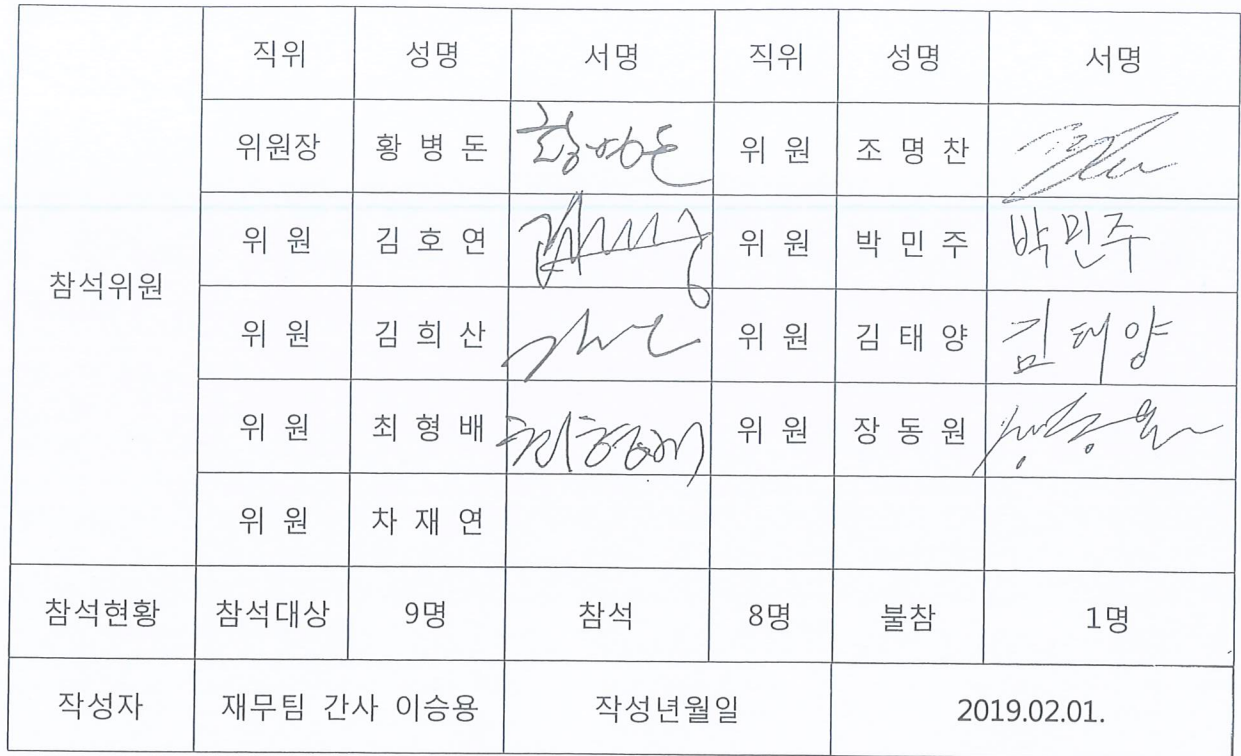 직위 성명 서명 직위 성명 서명
위원장 황 병 돈 황병돈 위 원 조 명 찬
위 원 김 호 연 위 원 박 민 주 박민주
참석위원
위 원 김 희 산 위 원 김 태 양 김태양
위 원 최 형 배 최형배 위 원 장 동 원
위 원 차 재 연
참석현황 참석대상 9명 참석 8명 불참 1명
작성자 재무팀 간사 이승용 작성년월일 2019.02.01.